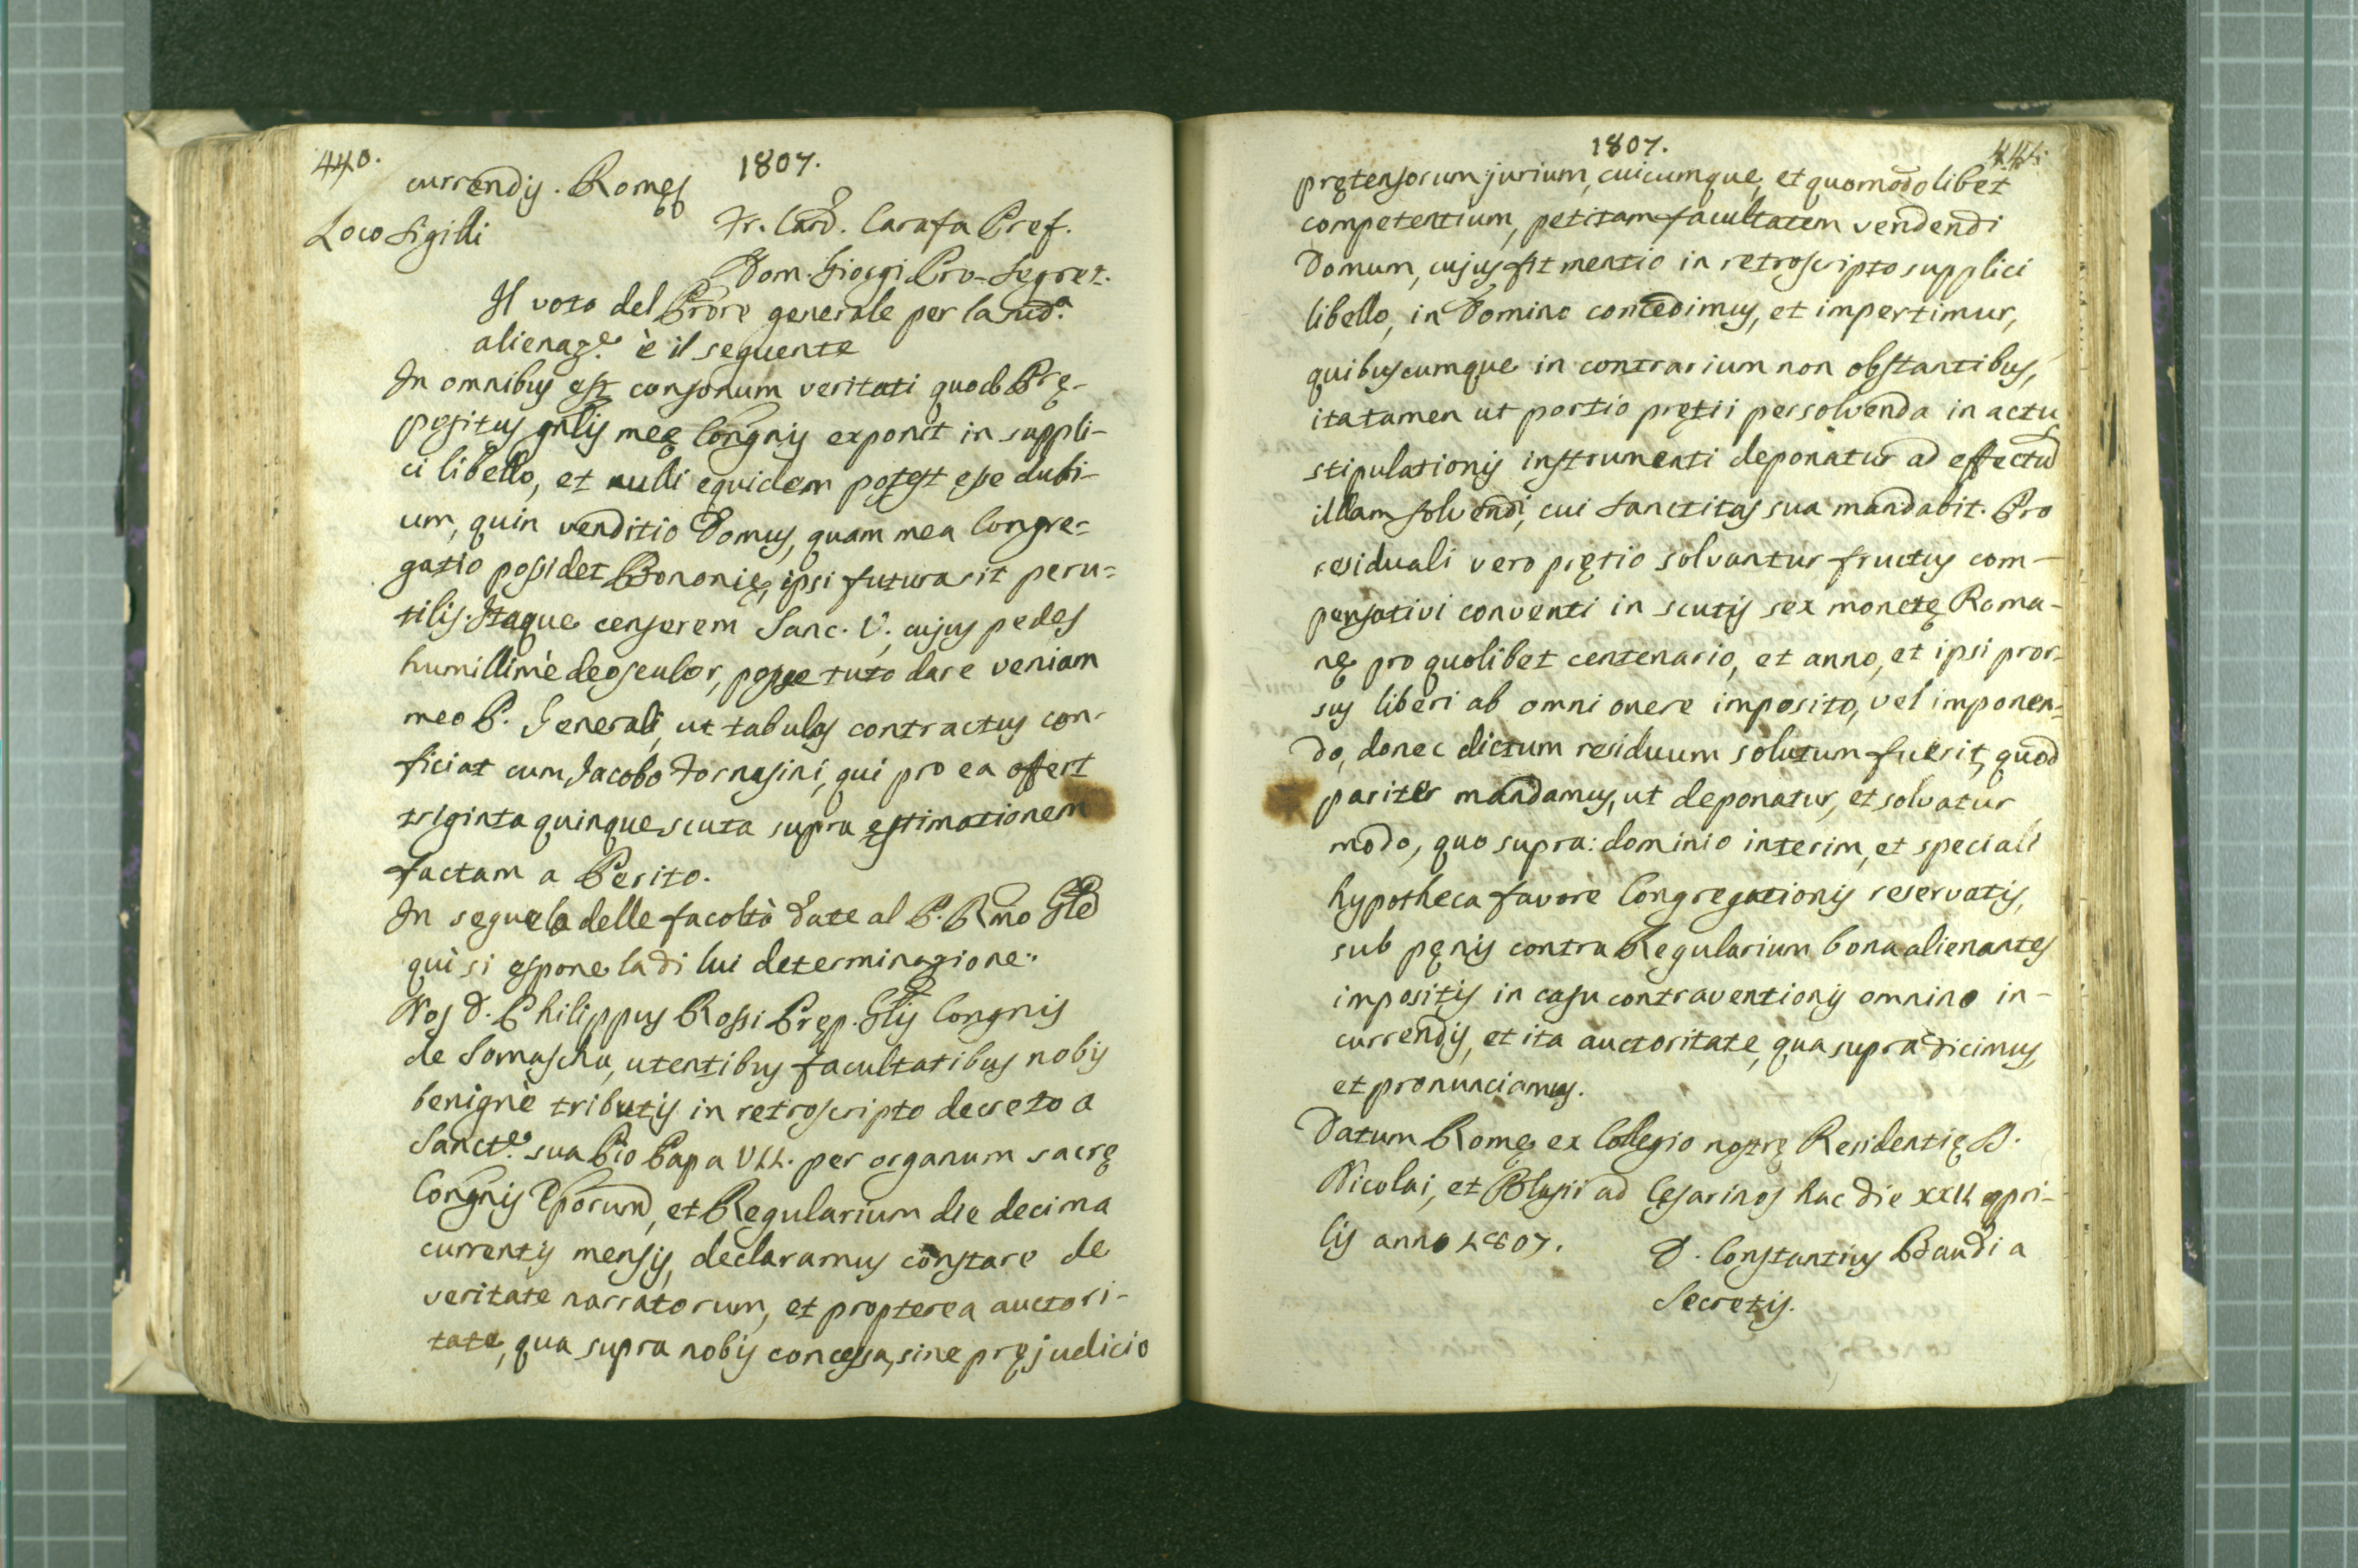 440.
1807.
currendis. Romę
Loco Sigilli
Fr. Card. Carafa Pref.
Dom. Giorgi Pro-Segret.
Il voto del Prore generale per la sud.ª
alienaz.e è il seguente
In omnibus est consonum veritati quod Prę-
positus gnlis meę Congnis exponit in suppli-
ci libello, et nulli equidem potest esse dubi-
um, quin venditio Domus, quam mea Congre-
gatio possidet Bononię, ipsi futura sit peru-
tilis. Itaque censerem Sanc. V., cujus pedes
humillimè deosculor, posse tuto dare veniam
meo P. Generali, ut tabulas contractus con-
ficiat cum Jacobo Fornasini, qui pro ea offert
triginta quinque scuta supra ęstimationem
factam a Perito.
In seguela delle facoltà date al P. Rmo Gle
quì si espone la di lui determinazione:
Nos D. Philippus Rossi Pręp. Glis Congnis
de Somascha, utentibus facultatibus nobis
benignè tributis in retroscripto decreto a
Sanct.e sua Pio Papa VII. per organum sacrę
Congnis Eporum, et Regularium die decima
currentis mensis, declaramus constare de
veritate narratorum, et propterea auctori-
tate, qua supra nobis concessa, sine pręjudicio
1807.
441.
prętensorum jurium, cuicumque, et quomodolibet
competentium, petitam facultatem vendendi
Domum, cujus fit mentio in retroscripto supplici
libello, in Domino concedimus, et impertimur,
quibuscumque in contrarium non obstantibus,
ita tamen ut portio prętii persolvenda in actu
stipulationis instrumenti deponatur ad effectu
illam solvendi, cui Sanctitas sua mandabit. Pro
residuali vero prętio solvantur fructus com-
pensativi conventi in scutis sex monetę Roma-
nę pro quolibet centenario, et anno, et ipsi pror-
sus liberi ab omni onere imposito, vel imponen-
do, donec dictum residuum solutum fuerit, quod
pariter mandamus, ut deponatur, et solvatur
modo, quo supra: dominio interim, et speciali
hypotheca favore Congregationis reservatis,
sub pęnis contra Regularium bona alienantes
impositis in casu contraventionis omnino in-
currendis, et ita auctoritate, qua supra dicimus,
et pronunciamus.
Datum Romę ex Collegio nostrę Residentię S.
Nicolai, et Blasii ad Cesarinos hac die XXII apri-
lis anno 1807.
D. Constantius Bandi a
Secretis.